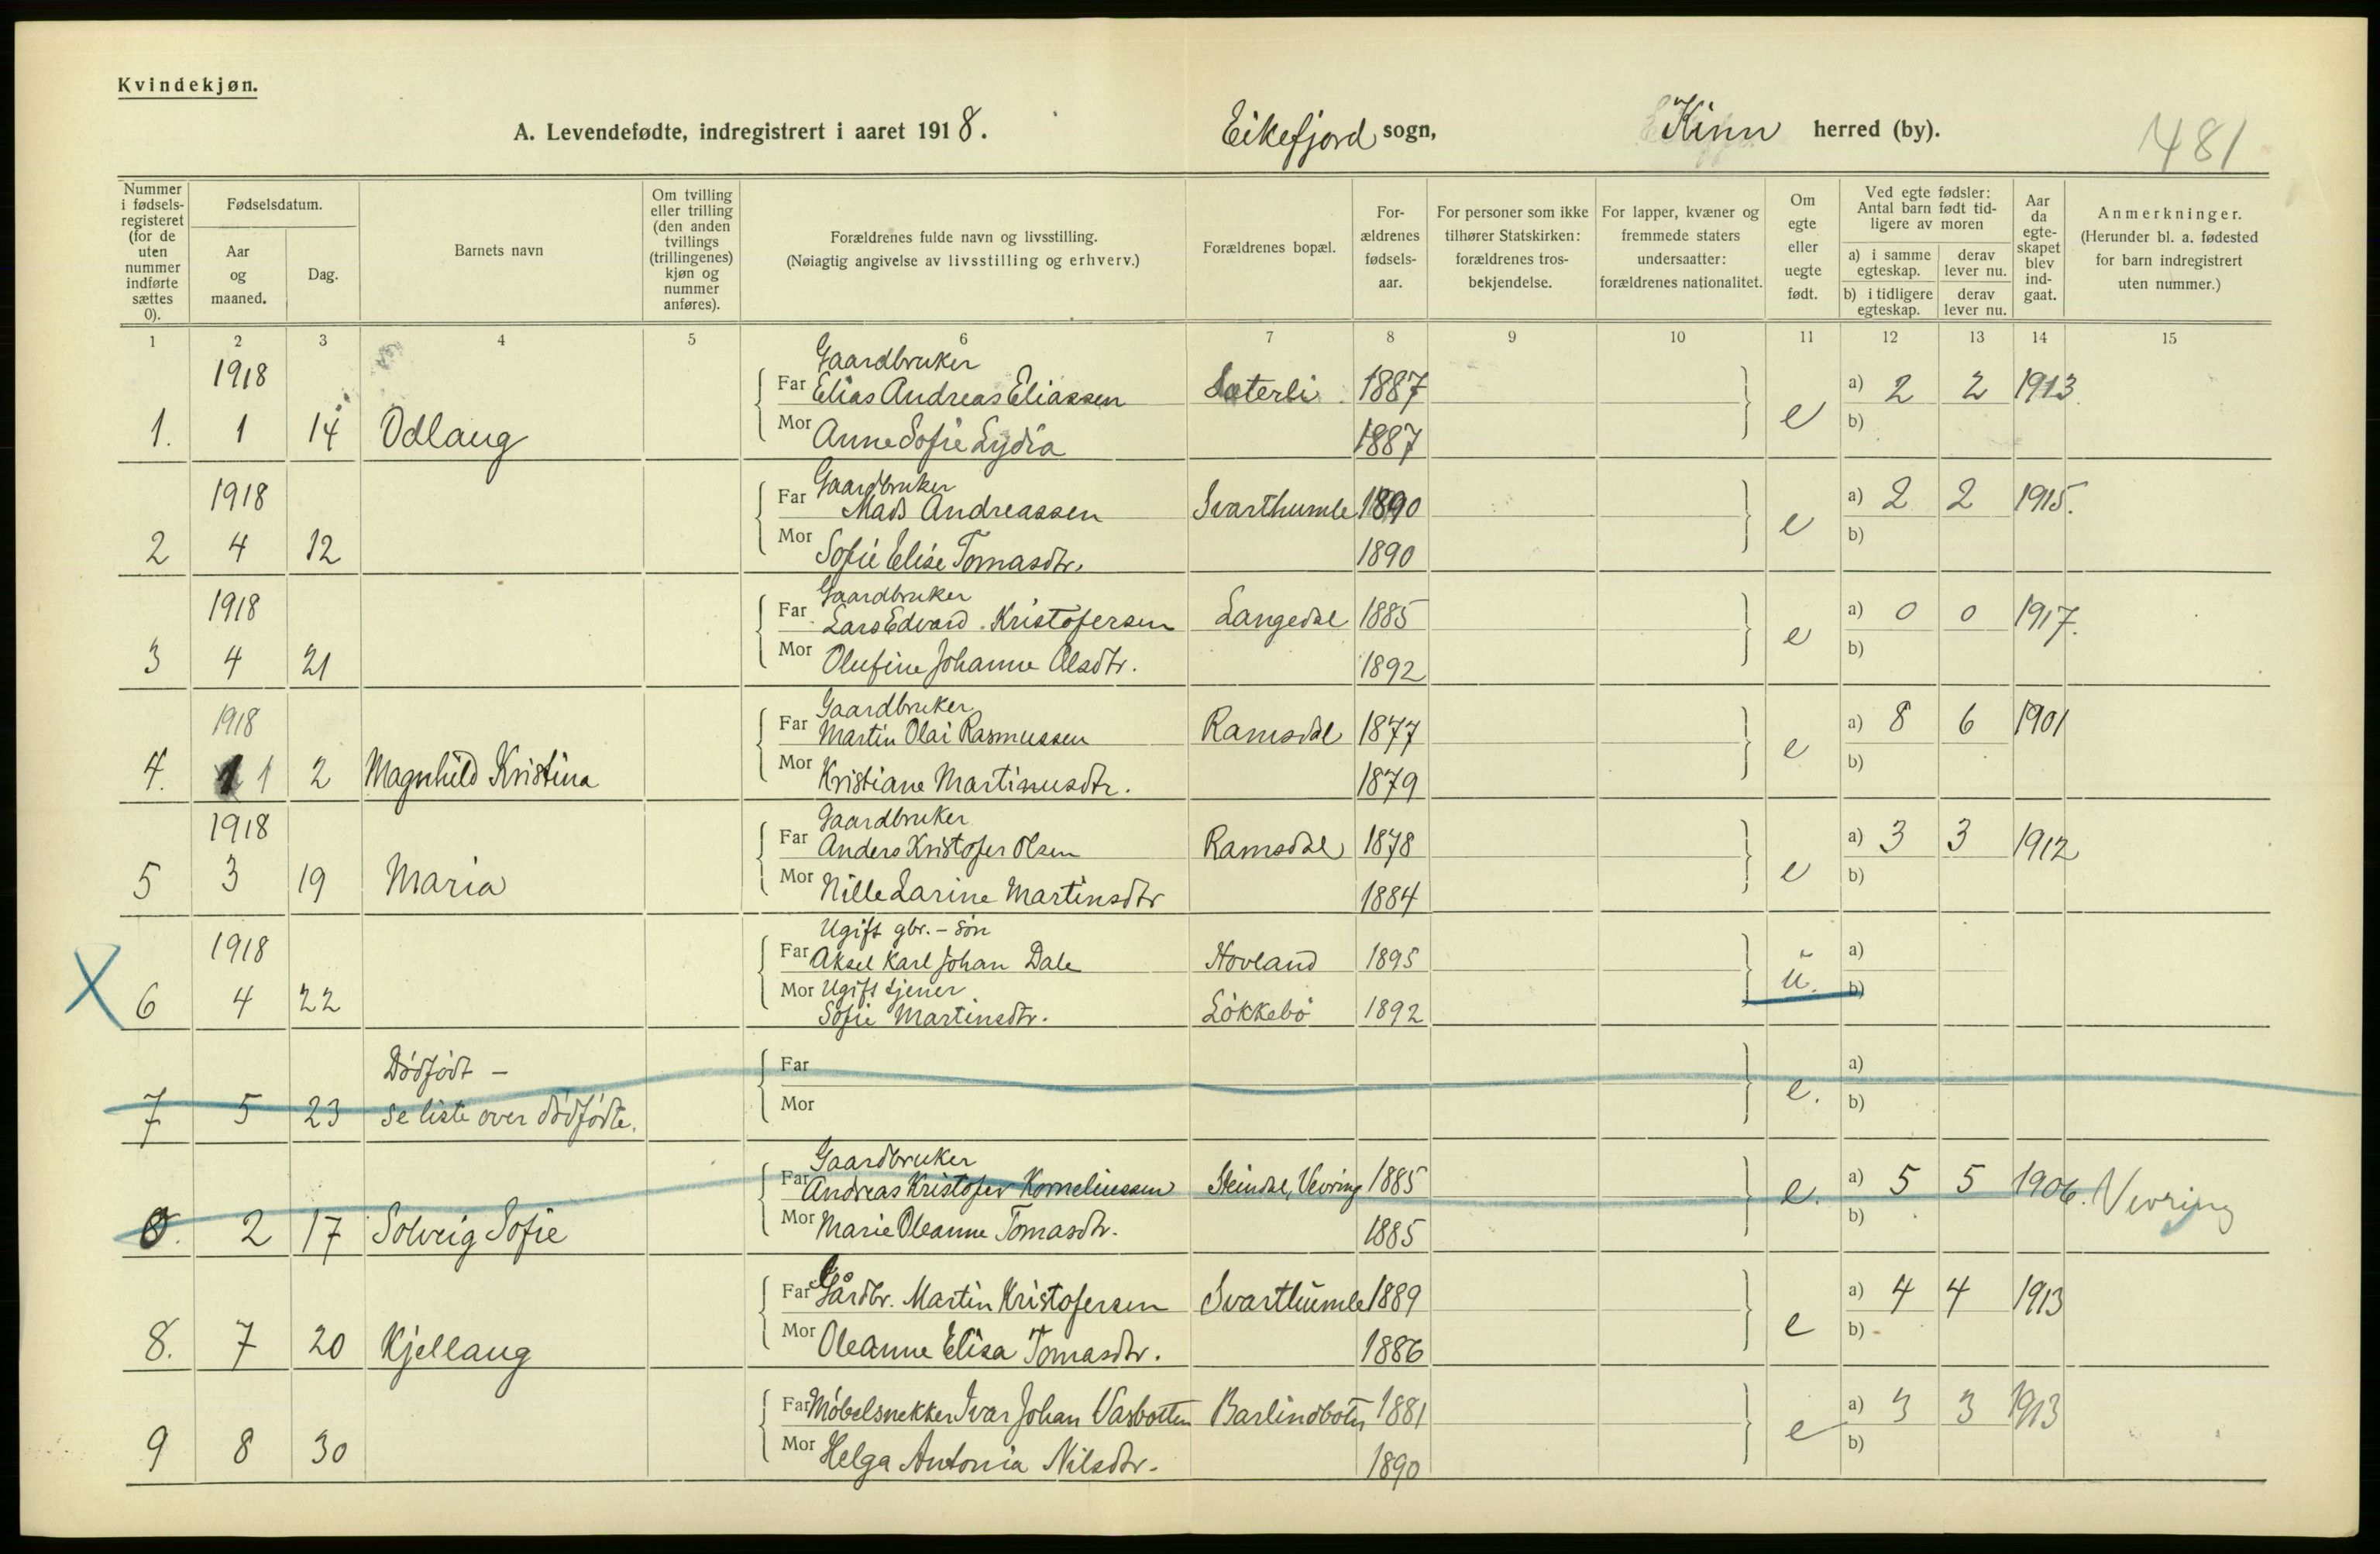 Kvindekjøn.
A. Levendefødte, indregistrert i aaret 1918. Eikefjord sogn, Kinn herred (by). 481
Nummer i fødsels-registeret (for de uten nummer indførte sættes 0).
Fødselsdatum.
Aar og maaned.
Dag.
Barnets navn
Om tvilling eller trilling (den anden tvillings (trillingenes) kjøn og nummer anføres).
Forældrenes fulde navn og livsstilling.
(Nøiagtig angivelse av livsstilling og erhverv.)
Forældrenes bopæl.
For-ældrenes fødsels-aar.
For personer som ikke tilhører Statskirken: forældrenes tros-bekjendelse.
For lapper, kvæner og fremmede staters undersaatter: forældrenes nationalitet.
Om egte eller uegte født.
Ved egte fødsler: Antal barn født tid-ligere av moren
a) i samme egteskap.
derav lever nu.
b) i tidligere egteskap.
derav lever nu.
Aar da egte-skapet blev ind-gaat.
Anmerkninger.
(Herunder bl. a. fødested for barn indregistrert uten nummer.)
1 2 3 4 5 6 7 8 9 10 11 12 13 14 15
1918 Gaardbruker
Far Elias Andreas Eliassen Sæterli 1887 a) 2 2 1913
1. 1 14 Odlaug Mor Anne Sofie Lydia 1887 e b)
1918 Gaardbruker
Far Mads Andreassen Svarthumle 1890 a) 2 2 1915.
2 4 12 Mor Sofie Elise Tomasdtr. 1890 e b)
1918 Gaardbruker
Far Lars Edvard Kristofersen Langedal 1885 a) 0 0 1917.
3 4 21 Mor Olufine Johanne Olsdtr. 1892 e b)
1918 Gaardbruker
Far Martin Olai Rasmussen Ramsdal 1877 a) 8 6 1901
4. 1 2 Magnhild Kristina Mor Kristiane Martinusdtr. 1879 e b)
1918 Gaardbruker
Far Anders Kristofer Olsen Ramsdal 1878 a) 3 3 1912
5 3 19 Maria Mor Nille Larine Martinsdtr 1884 e b)
1918 Ugift gbr.-søn
Far Aksel Karl Johan Dale Hovland 1895 a)
X 6 4 22 Mor Ugift tjener u. b)
Sofie Martinsdtr. Løkkebø 1892
Dødfødt - Far a)
7 5 23 se liste over dødfødte. Mor e. b)
Gaardbruker
Far Andreas Kristofer Korneliussen Steindal, Vevring 1885 e. a) 5 5 1906. Vevring
0. 2 17 Solveig Sofie Mor Marie Oleanne Tomasdtr. 1885 b)
Far Gårdbr. Martin Kristofersen Svarthumle 1889 a) 4 4 1913
8. 7 20 Kjellaug Mor Oleanne Elisa Tomasdtr. 1886 e b) -
Far Møbelsnekker Ivar Johan Vasbotten Barlindbotn 1881 a) 3 3 1913
9 8 30 Mor Helga Antonia Nilsdtr. 1890 e b)